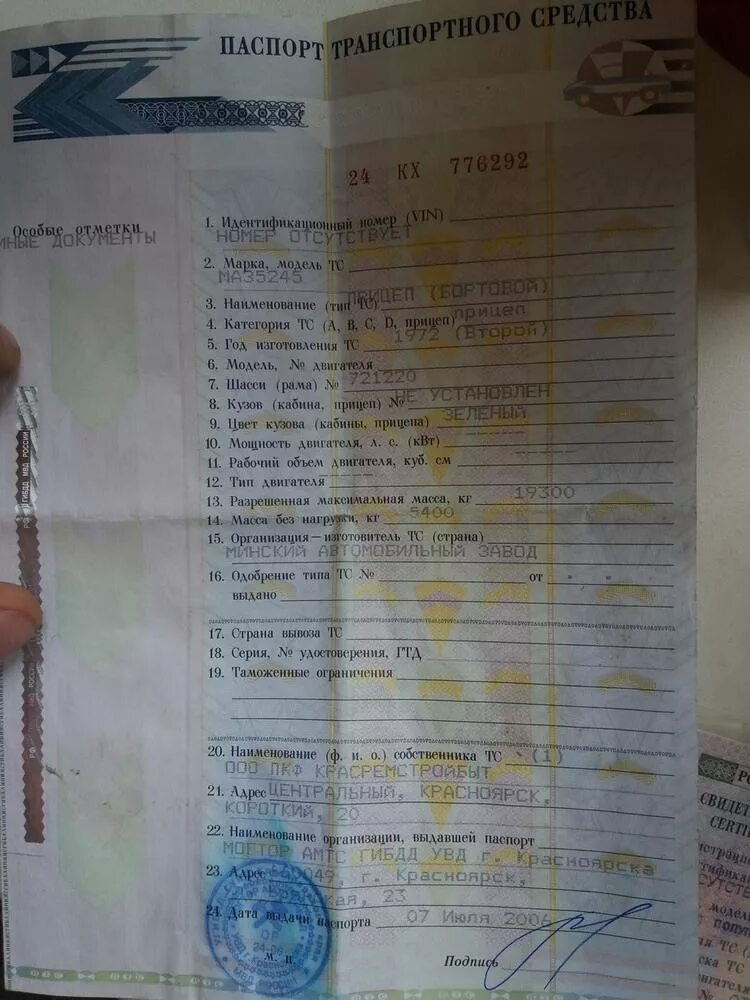 ПАСПОРТ ТРАНСПОРТНОГО СРЕДСТВА
24 КХ 776292
Особые отметки
ДОКУМЕНТЫ
1. Идентификационный номер (VIN)
НОМЕР ОТСУТСТВУЕТ
2. Марка, модель ТС
МАЗ5245
3. Наименование (тип ТС) ПРИЦЕП (БОРТОВОЙ)
4. Категория ТС (А, В, С, D, прицеп) прицеп
5. Год изготовления ТС 1972 (Второй)
6. Модель, № двигателя
7. Шасси (рама) № 721220
8. Кузов (кабина, прицеп) № НЕ УСТАНОВЛЕН
9. Цвет кузова (кабины, прицепа) ЗЕЛЕНЫЙ
10. Мощность двигателя, л. с. (кВт)
11. Рабочий объем двигателя, куб. см
12. Тип двигателя
13. Разрешенная максимальная масса, кг 19300
14. Масса без нагрузки, кг 5400
15. Организация—изготовитель ТС (страна)
МИНСКИЙ АВТОМОБИЛЬНЫЙ ЗАВОД
16. Одобрение типа ТС № от
выдано
17. Страна вывоза ТС
18. Серия, № удостоверения, ГТД
19. Таможенные ограничения
20. Наименование (ф. и. о.) собственника ТС (1)
ООО ПКФ КРАСРЕМСТРОЙБЫТ
21. Адрес ЦЕНТРАЛЬНЫЙ, КРАСНОЯРСК,
КОРОТКИЙ, 20
22. Наименование организации, выдавшей паспорт
МОГТОР АМТС ГИБДД УВД г. Красноярска
23. Адрес г. Красноярск,
23
24. Дата выдачи паспорта 07 Июля 2006
М. П.
Подпись